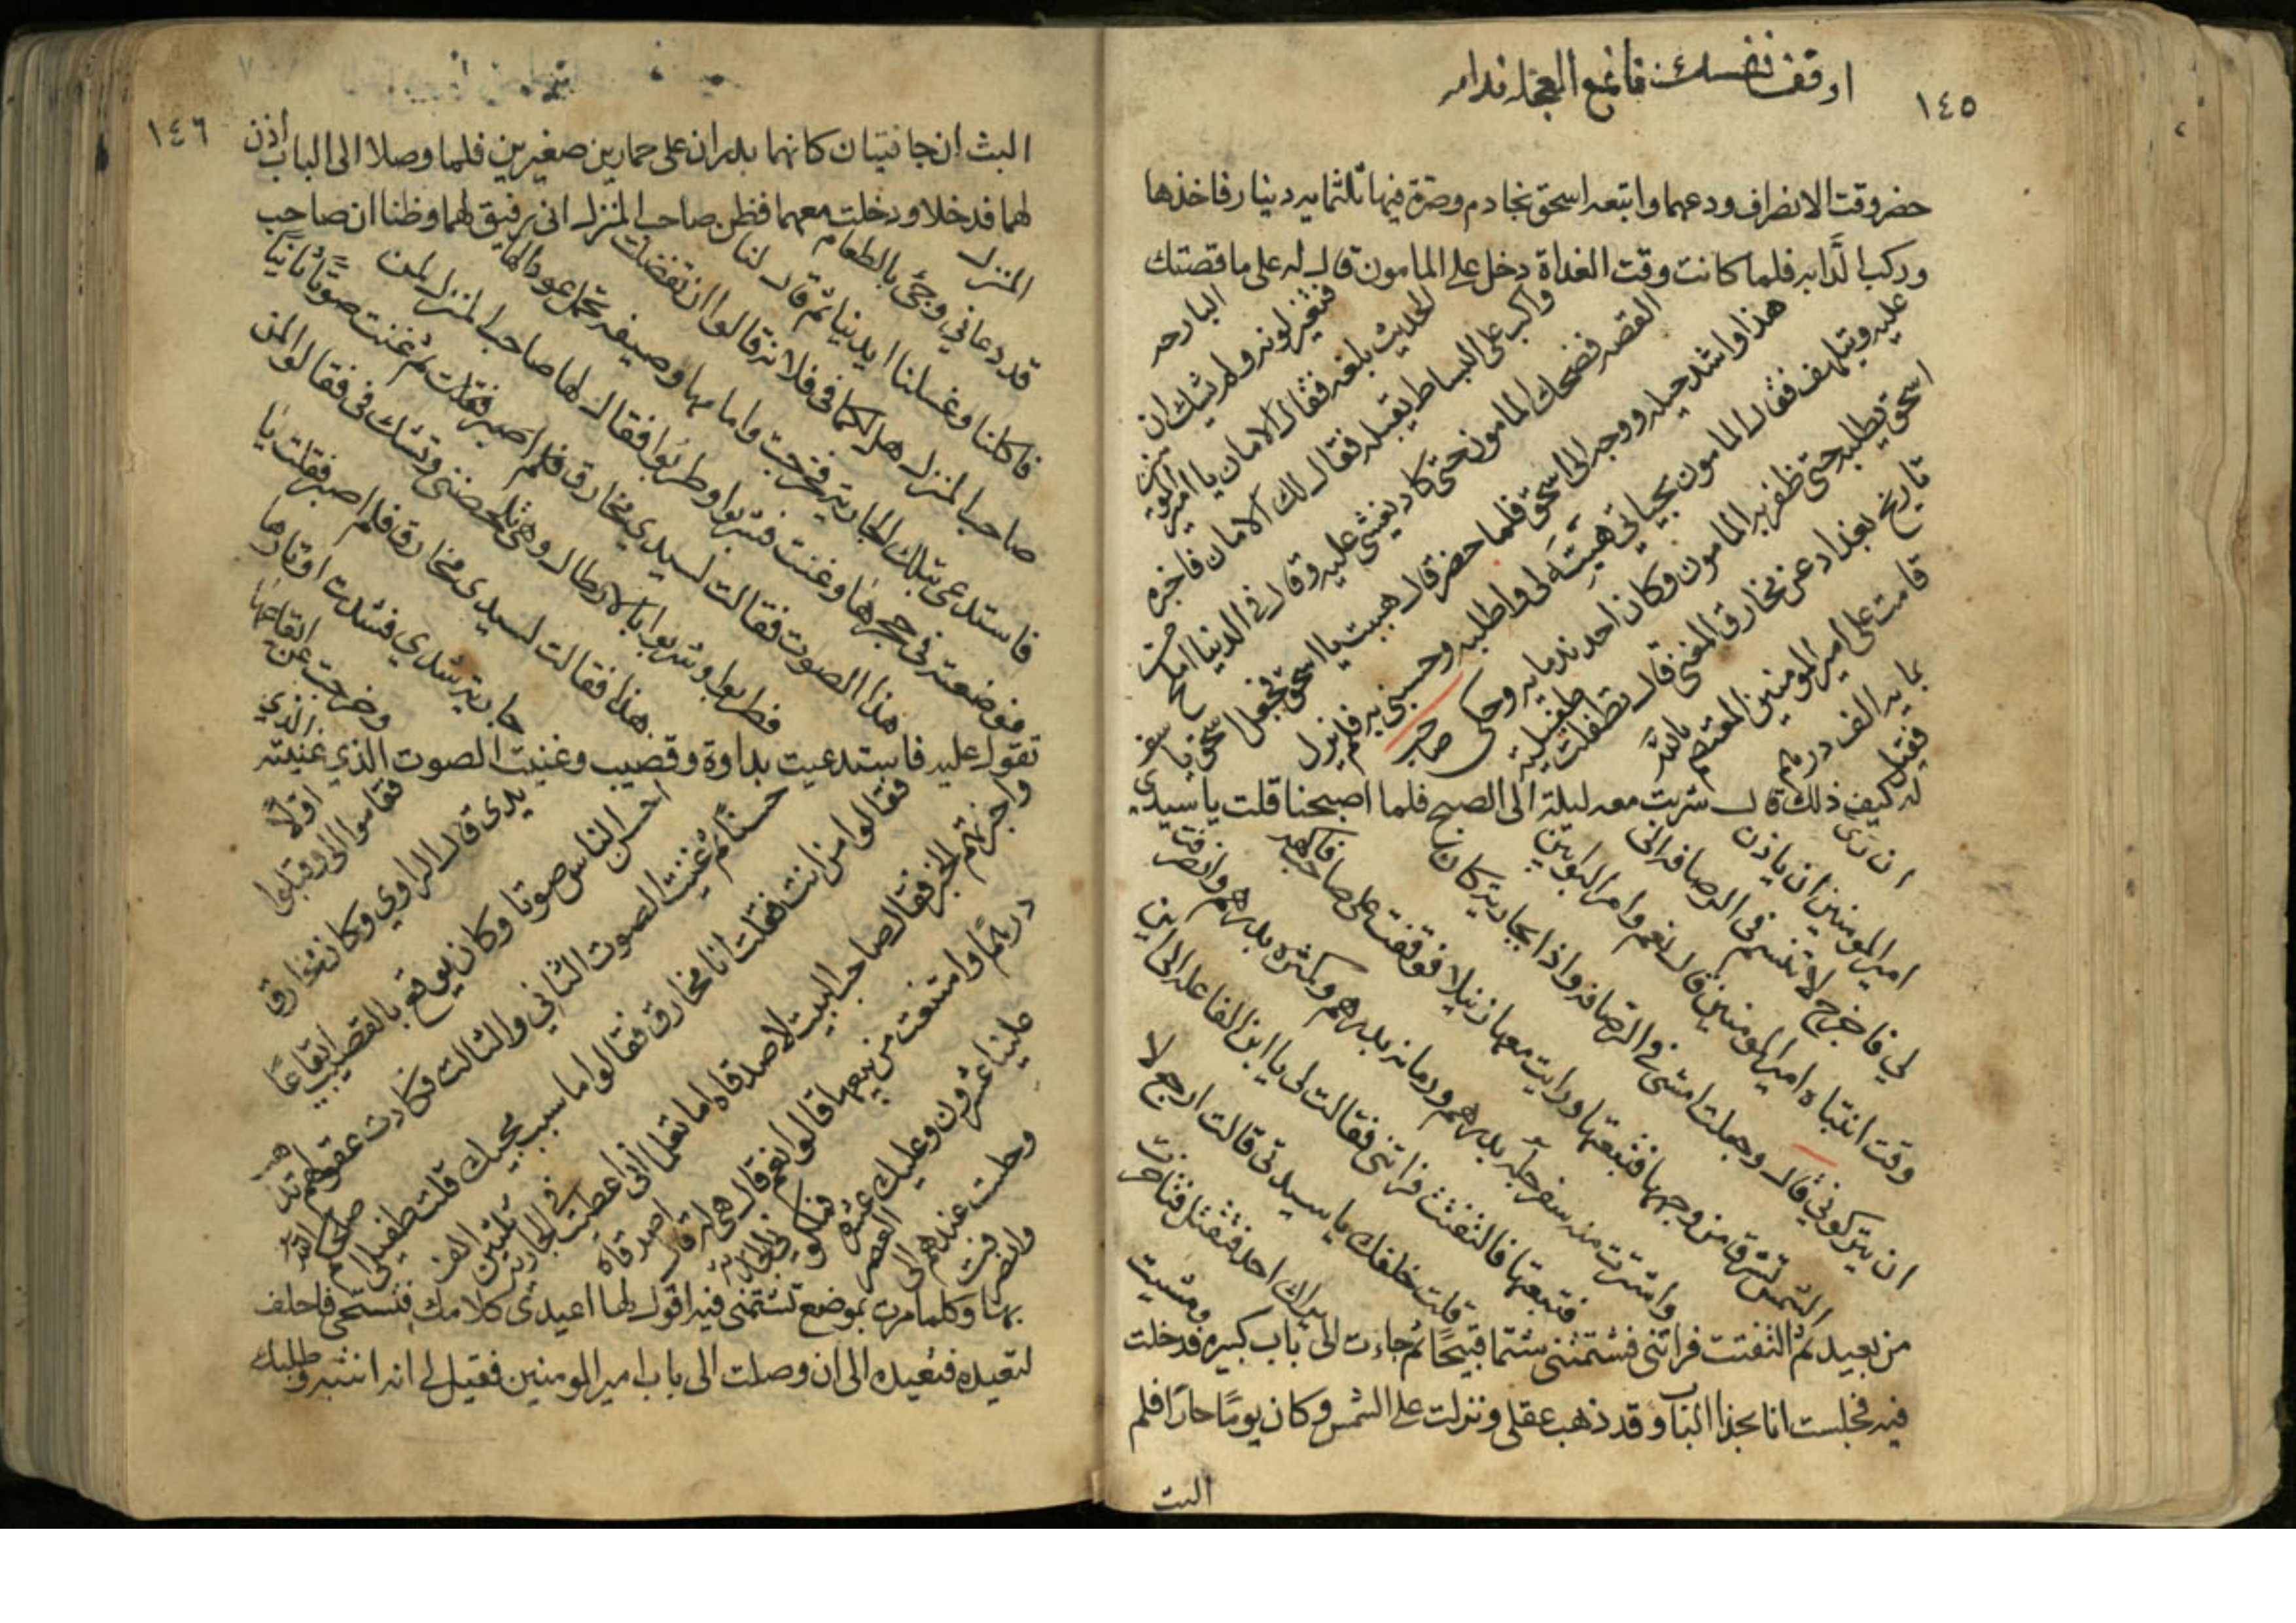 ١٤٥
اوقف نفسك فانمع العجله ندامه
حضر وقت الانصراف ودعهما واتبعه اسحق بخادم وصرة فيها ثلثمايه دينار فاخذها
وركب الدابه فلما كانت وقت الغداة دخل على المامون قال له على ما قصتك
البارحه
فتغير لونه ولم يشك ان
الحديث بلغه فقال الامان يا امير المومنين
واكب على البساط يقبله فقال لك الامان فاخبره
القصه فضحك المامون حتى كاد يغشى عليه وقال في الدنيا املح من
هذا واشد حيله ووجه الى اسحق فلما حضر قال هيت يا اسحق فجعل اسحق يا سف
عليه ويتلهف فقال المامون بحياتي هبته لى واطلبه وحسبنى به فلم يزل
اسحق يطلبه حتى ظفر به المامون وكان احد ندمايه وحكى صاحب
تاريخ بغداد عن مخارق المغنى قال تطفلت طفيلية
قامت على امير المومنين المعتصم بالله
بمايه الف درهم
فقيل
له كيف ذلك قال شربت معه ليلة الى الصبح فلما اصبحنا قلت يا سيدى
ان رى
امير المومنين ان ياذن
لي فاخرج لا تنسم فى الرصافه الى
وقت انتباه امير المومنين قال نعم وامر البوابين
ان يتركوني قال وجعلت امشى في الرصافه واذا بجارية كان
الشمس تشرق من وجهها فتبعتها ورايت معها زنبيلا فوقفت على صاحب فاكهه
واشترت منه سفرجله بدرهم ورمانه بدرهم وكمثره بدرهم وانصرفت
فتبعتها فالتفتت فراتنى فقالت لى يا ابن الفاعله الى اين
قلت خلفك يا سيدتى قالت ارجع لا
يراك احد فتقتل فتاخرت
ومشيت
من بعيد ثم التفتت فراتنى فشتمتنى شتما قبيحا ثم جاءت الى باب كبيره فدخلت
فيه فجلست انا بحذا الباب وقد ذهب عقلى ونزلت على الشمس وكان يوما حارا فلم
البث
١٤٦
البث ان جا فتيان كانهما بدران على حمارين صغيرين فلما وصلا الى الباب اذن
لهما فدخلا ودخلت معهما فظن صاحب المنزل انى رفيق لهما وظنا ان صاحب
المنزل
قد دعاني وجئ بالطعام
فاكلنا وغسلنا ايدينا ثم قال لنا
صاحب المنزل هل لكما فى فلانه قالوا ان تفضلت
فاستدعى بتلك الجاريه فخرجت وامامها وصيفه تحمل عودا لها
فوضعته فى حجرها وغنت فشربوا وطربوا فقال لها صاحب المنزل لمن
هذا الصوت فقالت لسيدى مخارق فلم اصبر فقلت ثم غنت صوتا ثانيا
فطربوا وشربوا بالارطال وهى تلحضنى وتشك فى فقالوا لمن
هذا فقالت لسيدى مخارق فلم اصبر فقلت يا
جاريه شدي فشدت اوتارها
وخرجت عن ايقاعها
الذي
تقول عليه فاستدعيت بداوة وقصيب وغنيت الصوت الذي غنيته
اولا
فقاموا الى وقبلوا
يدى قال الراوي وكان مخارق
احسن الناس صوتا وكان يوقع بالقصيب ايقاعا
حسنا ثم غنيت الصوت الثاني والثالث فكادت عقولهم تذهب
فقالوا من انت فقلت انا مخارق فقالوا ما سبب مجيك قلت طفيلى اصلحكم الله
واخبرتهم الخبر فقال صاحب البيت لاصدقاه اما تعلما انى اعطيت في الجاريه ثلثين الف
درهما وامتنعت من بيعها قالوا نعم قال هى له قال اصدقاه
علينا عشرون وعليك عشره
وجلست عندهم الى العصر
وانصرفت
بها وكلما مرت بموضع تشتمنى فيه اقول لها اعيدى كلامك فتستحى فاحلف
لتعيده فتعيده الى ان وصلت الى باب امير المومنين فقيل لى انه انتبه وطلبك